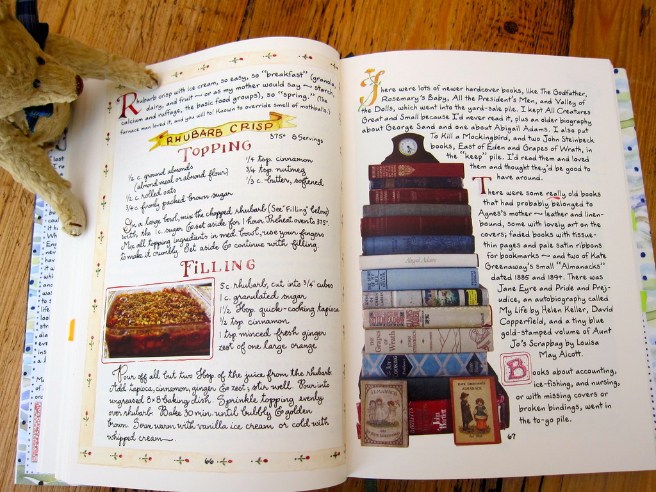 Rhubarb crisp with ice cream, so easy, so "breakfast" (grand a
dairy, and fruit — or as my mother would say — starch,
calcium and raffage, the basic food groups), so "spring." (The
furnace man loved it, and you will to! Known to override smell of mothballs.)
RHUBARB CRISP
375° 8 Servings
TOPPING
½ c. ground almonds
(almond meal or almond flour)
½ c. rolled oats
¾ c. firmly packed brown sugar
¼ tsp. cinnamon
¾ tsp. nutmeg
⅓ c. butter, softened
In a large bowl, mix the chopped rhubarb (See "Filling" below)
with the 1c. sugar & set aside for 1 hour. Preheat oven to 375°.
Mix all topping ingredients in med. bowl, use your fingers
to make it crumbly. Set aside & continue with filling.
FILLING
5 c. rhubarb, cut into ¾" cubes
1 c. granulated sugar
1½ tbsp. quick-cooking tapioca
½ tsp. cinnamon
1 tsp. minced fresh ginger
zest of one large orange
Pour off all but two tbsp of the juice from the rhubarb.
Add tapioca, cinnamon, ginger & zest; stir well. Pour into
ungreased 8×8 baking dish. Sprinkle topping evenly
over rhubarb. Bake 30 min. until bubbly & golden
brown. Serve warm with vanilla ice cream or cold with
whipped cream—
66
There were lots of newer hardcover books, like The Godfather,
Rosemary's Baby, All the President's Men, and Valley of
the Dolls, which went into the yard-sale pile. I kept All Creatures
Great and Small because I'd never read it, plus an older biography
about George Sand and one about Abigail Adams. I also put
To Kill a Mockingbird, and two John Steinbeck
books, East of Eden and Grapes of Wrath, in
the "keep" pile. I'd read them and loved
them and thought they'd be good to
have around.
There were some really old books
that had probably belonged to
Agnes's mother — leather and linen-
bound, some with lovely art on the
covers; faded books with tissue-
thin pages and pale satin ribbons
for bookmarks — and two of Kate
Greenaway's small "Almanacks"
dated 1885 and 1894. There was
Jane Eyre and Pride and Prej-
udice, an autobiography called
My Life by Helen Keller, David
Copperfield, and a tiny blue
gold-stamped volume of Aunt
Jo's Scrapbag by Louisa
May Alcott.
Books about accounting,
ice-fishing, and nursing,
or with missing covers or
broken bindings, went in
the to-go pile.
Abigail Adams
67